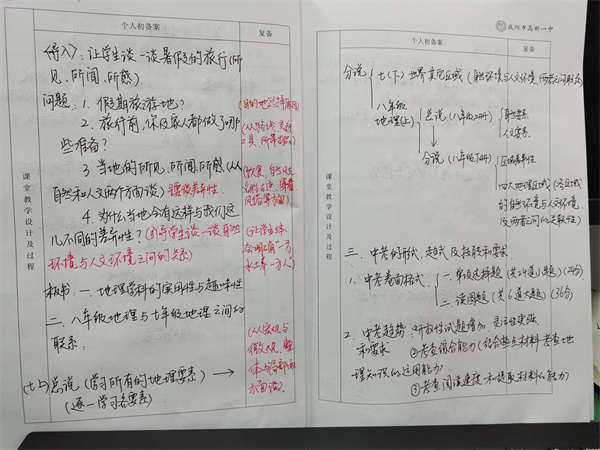 个人初备案
复备
<导入>：让学生谈一谈暑假的旅行(所
见、所闻、所感)
问题：1. 假期旅游地？
2. 旅行前，你及家人都做了哪
些准备？
3. 当地的所见、所闻、所感(从
自然和人文两个方面谈)
4. 为什么当地会有这样与我们这
儿不同的差异性？(引导学生谈一谈自然
环境与人文环境之间的关系)
板书：一. 地理学科的实用性与趣味性
二. 八年级地理与七年级地理之间的
联系：
(七上)总说(学习所有的地理要素)
(逐一学习各要素)
(从宏观与
微观，整
体与局部
方面谈)
课堂教学设计及过程
咸阳市高新一中
个人初备案
复备
分说
七(下) 世界其它区域(自然环境与人文环境，两者之间联系)
八年级
地理(上)
总说(八年级上册)
自然要素
人文要素
分说(八年级下册)
区域差异性
四大地理区域(各区域
的自然环境与人文环境
及两者之间的关联性)
三. 中考的形式、趋势及技能和要求
1. 中考卷面格式
一. 单项选择题(共24道小题)(24分)
二. 读图题(共6道大题)(36分)
2. 中考趋势
和要求
①开放性试题增加，灵活性更强
②考查综合能力(结合热点材料考查地
理知识的运用能力)
③考查阅读速度和提取材料的能力)
课堂教学设计及过程